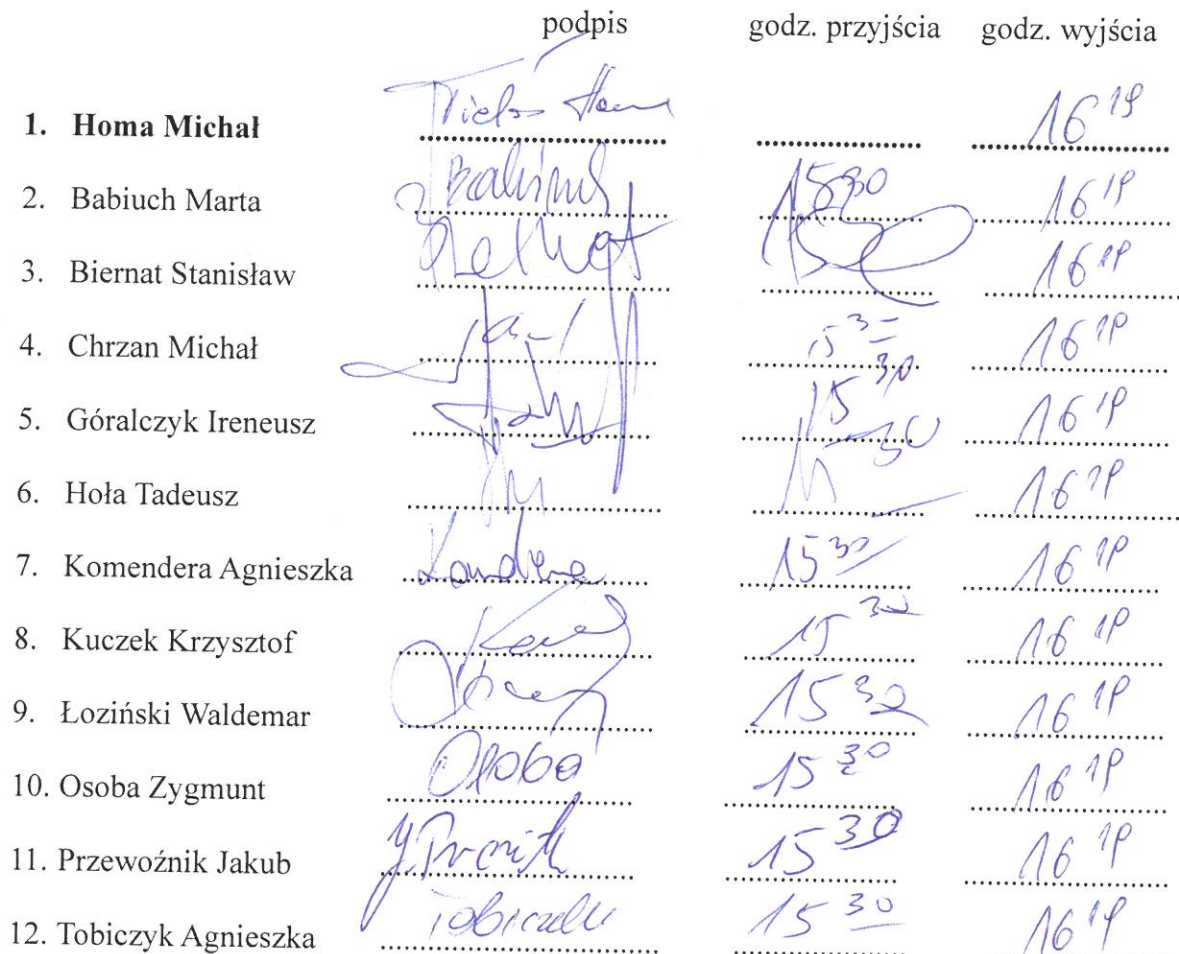 podpis godz. przyjścia godz. wyjścia
1. Homa Michał 16 19
2. Babiuch Marta 15 30 16 19
3. Biernat Stanisław 16 19
4. Chrzan Michał 15 30 16 19
5. Góralczyk Ireneusz 15 30 16 19
6. Hoła Tadeusz 30 16 19
7. Komendera Agnieszka 15 30 16 19
8. Kuczek Krzysztof 15 30 16 19
9. Łoziński Waldemar 15 30 16 19
10. Osoba Zygmunt Osoba 15 30 16 19
11. Przewoźnik Jakub 15 30 16 19
12. Tobiczyk Agnieszka 15 30 16 19